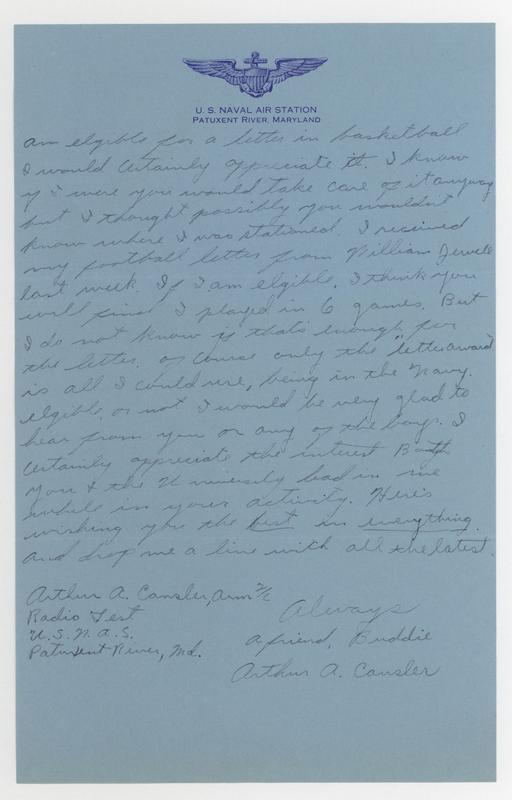 U. S. NAVAL AIR STATION
PATUXENT RIVER, MARYLAND
am elgible for a letter in basketball
I would certainly appreciate it. I know
if I were you would take care of it anyway
but I thought possibly you wouldn't
know where I was stationed. I received
my football letter from William Jewell
last week. If I am elgible, I think you
will find I played in 6 games. But
I do not know if that's enough for
the letter. of course only the "letter award"
is all I could use, being in the Navy.
elgible or not I would be very glad to
hear from you or any of the boys. I
certainly appreciate the interest Both
you & the University had in me
while in your activity. Here's
wishing you the best in everything.
and drop me a line with all the latest.
Arthur A. Cansler, Arm 2/c
Radio Test
U.S.N.A.S.
Patuxent River, Md.
Always
a friend, Buddie
Arthur A. Cansler